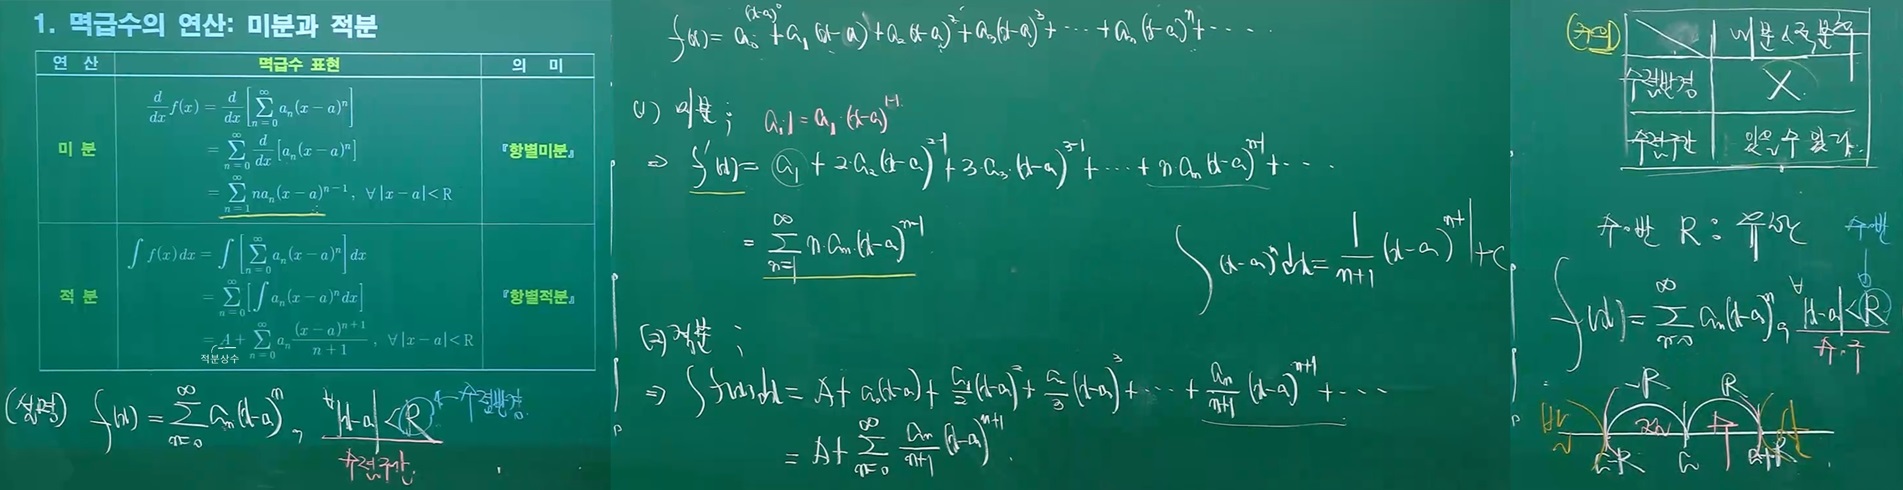 1. 멱급수의 연산: 미분과 적분
연 산 멱급수 표현 의 미
미 분
d/dx f(x) = d/dx [∑_{n=0}^{∞} a_n(x-a)^n]
= ∑_{n=0}^{∞} d/dx [a_n(x-a)^n]
= ∑_{n=1}^{∞} na_n(x-a)^{n-1}, ∀|x-a|<R
『항별미분』
적 분
∫f(x)dx = ∫[∑_{n=0}^{∞} a_n(x-a)^n]dx
= ∑_{n=0}^{∞} [∫a_n(x-a)^n dx]
= A + ∑_{n=0}^{∞} a_n (x-a)^{n+1}/(n+1), ∀|x-a|<R
적분상수
『항별적분』
(설명) f(x) = ∑_{n=0}^{∞} a_n(x-a)^n, ∀|x-a|<R ← 수렴반경
수렴구간
(x-a)^0
f(x) = a_0 + a_1(x-a) + a_2(x-a)^2 + a_3(x-a)^3 + ⋯ + a_n(x-a)^n + ⋯
(1) 미분 ; a_1·1 = a_1·(x-a)^{1-1}
⇒ f'(x) = a_1 + 2·a_2(x-a)^{2-1} + 3·a_3·(x-a)^{3-1} + ⋯ + n·a_n(x-a)^{n-1} + ⋯
= ∑_{n=1}^{∞} n·a_n·(x-a)^{n-1}
∫(x-a)^n dx = 1/(n+1) (x-a)^{n+1} + C
(2) 적분 ;
⇒ ∫f(x)dx = A + a_0(x-a) + a_1/2 (x-a)^2 + a_2/3 (x-a)^3 + ⋯ + a_n/(n+1) (x-a)^{n+1} + ⋯
= A + ∑_{n=0}^{∞} a_n/(n+1) (x-a)^{n+1}
(주의)
미분 적분
수렴반경 X
수렴구간 있을 수 있다.
수·반 R : 수·반
f(x) = ∑_{n=0}^{∞} a_n(x-a)^n, ∀|x-a|<R
수·구
-R R
a-R a a+R